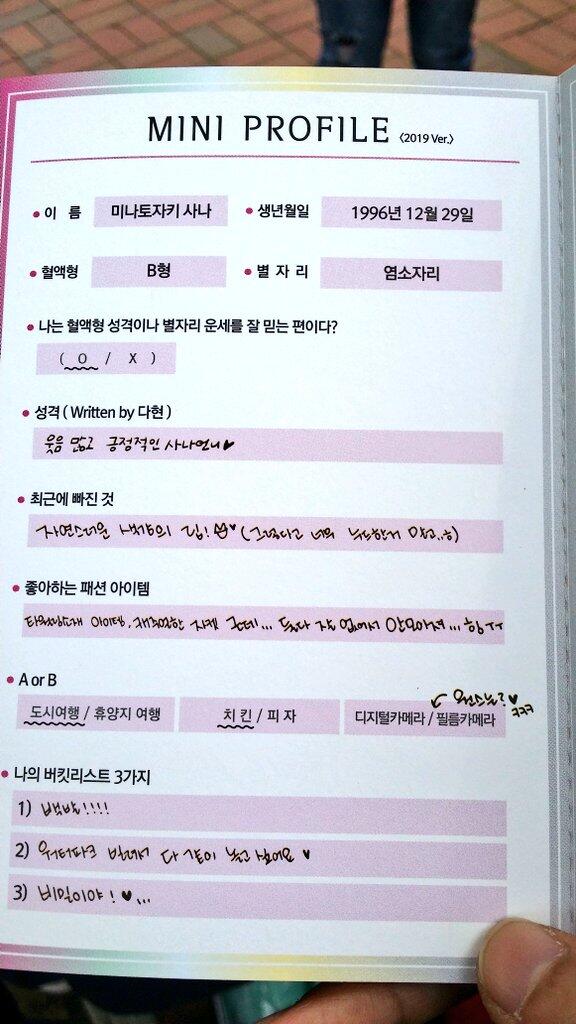 MINI PROFILE <2019 Ver.>
이 름 미나토자키 사나 생년월일 1996년 12월 29일
혈액형 B형 별 자 리 염소자리
나는 혈액형 성격이나 별자리 운세를 잘 믿는 편이다?
( O / X )
성격 ( Written by 다현 )
웃음 많고 긍정적인 사나언니♥
최근에 빠진 것
자연스러운 색깔의 립! ♥ (그렇다고 너무 누드한거 말고..ㅎ)
좋아하는 패션 아이템
아이템, 자켓 근데... 둘다 잘 없어서 안모아져... 힝ㅜㅜ
A or B
도시여행 / 휴양지 여행 치 킨 / 피 자 디지털카메라 / 필름카메라
원스는? ♥
ㅋㅋㅋ
나의 버킷리스트 3가지
1) !!!!
2) 워터파크 빌려서 다 같이 놀고 싶어요 ♥
3) 비밀이야! ♥...